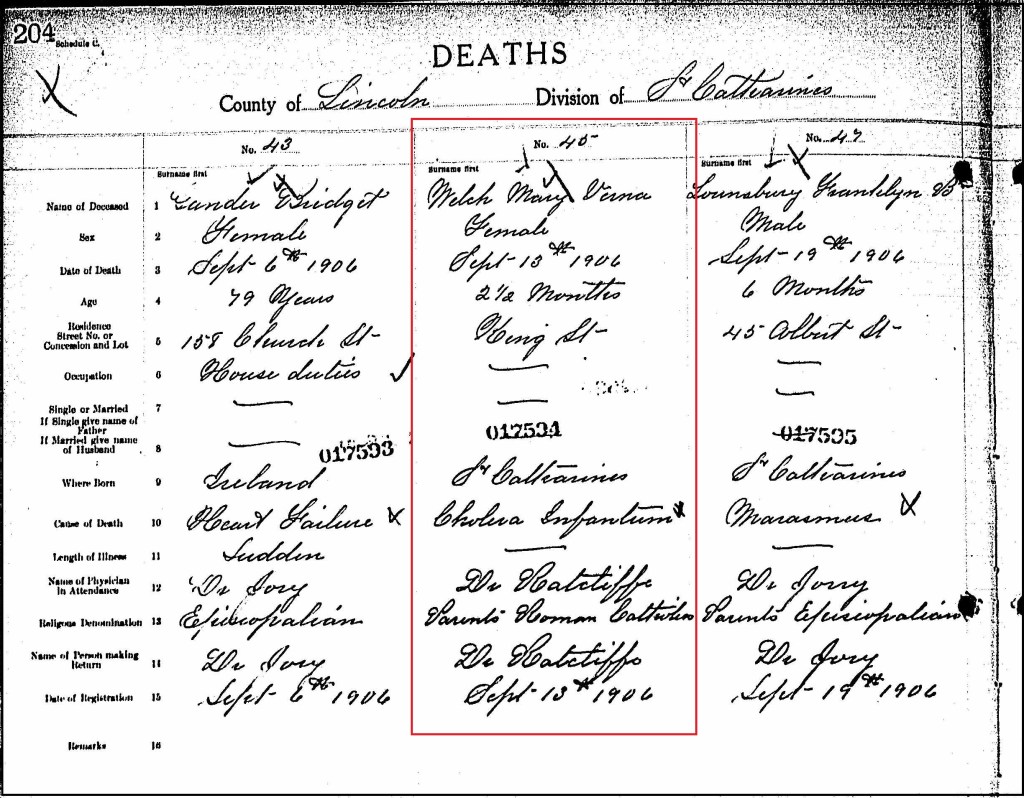 204 Schedule C.
DEATHS
County of Lincoln Division of St Catharines
No. 43 No. 45 No. 47
Surname first Surname first Surname first
Name of Deceased 1 Gander Bridget Welch Mary Verna Lounsbury Franklyn B
Sex 2 Female Female Male
Date of Death 3 Sept 6th 1906 Sept 13th 1906 Sept 19th 1906
Age 4 79 Years 2 1/2 Months 6 Months
Residence
Street No. or
Concession and Lot 5 158 Church St King St 45 Albert St
Occupation 6 House duties — —
Single or Married 7 — — —
If Single give name of
Father
If Married give name
of Husband 8 — 017593 017594 017595
Where Born 9 Ireland St Catharines St Catharines
Cause of Death 10 Heart Failure Cholera Infantum Marasmus
Length of Illness 11 Sudden — —
Name of Physician
in Attendance 12 Dr Jory Dr Ratcliffe Dr Jory
Religious Denomination 13 Episcopalian Parents Roman Catholics Parents Episcopalian
Name of Person making
Return 14 Dr Jory Dr Ratcliffe Dr Jory
Date of Registration 15 Sept 6th 1906 Sept 13th 1906 Sept 19th 1906
Remarks 16